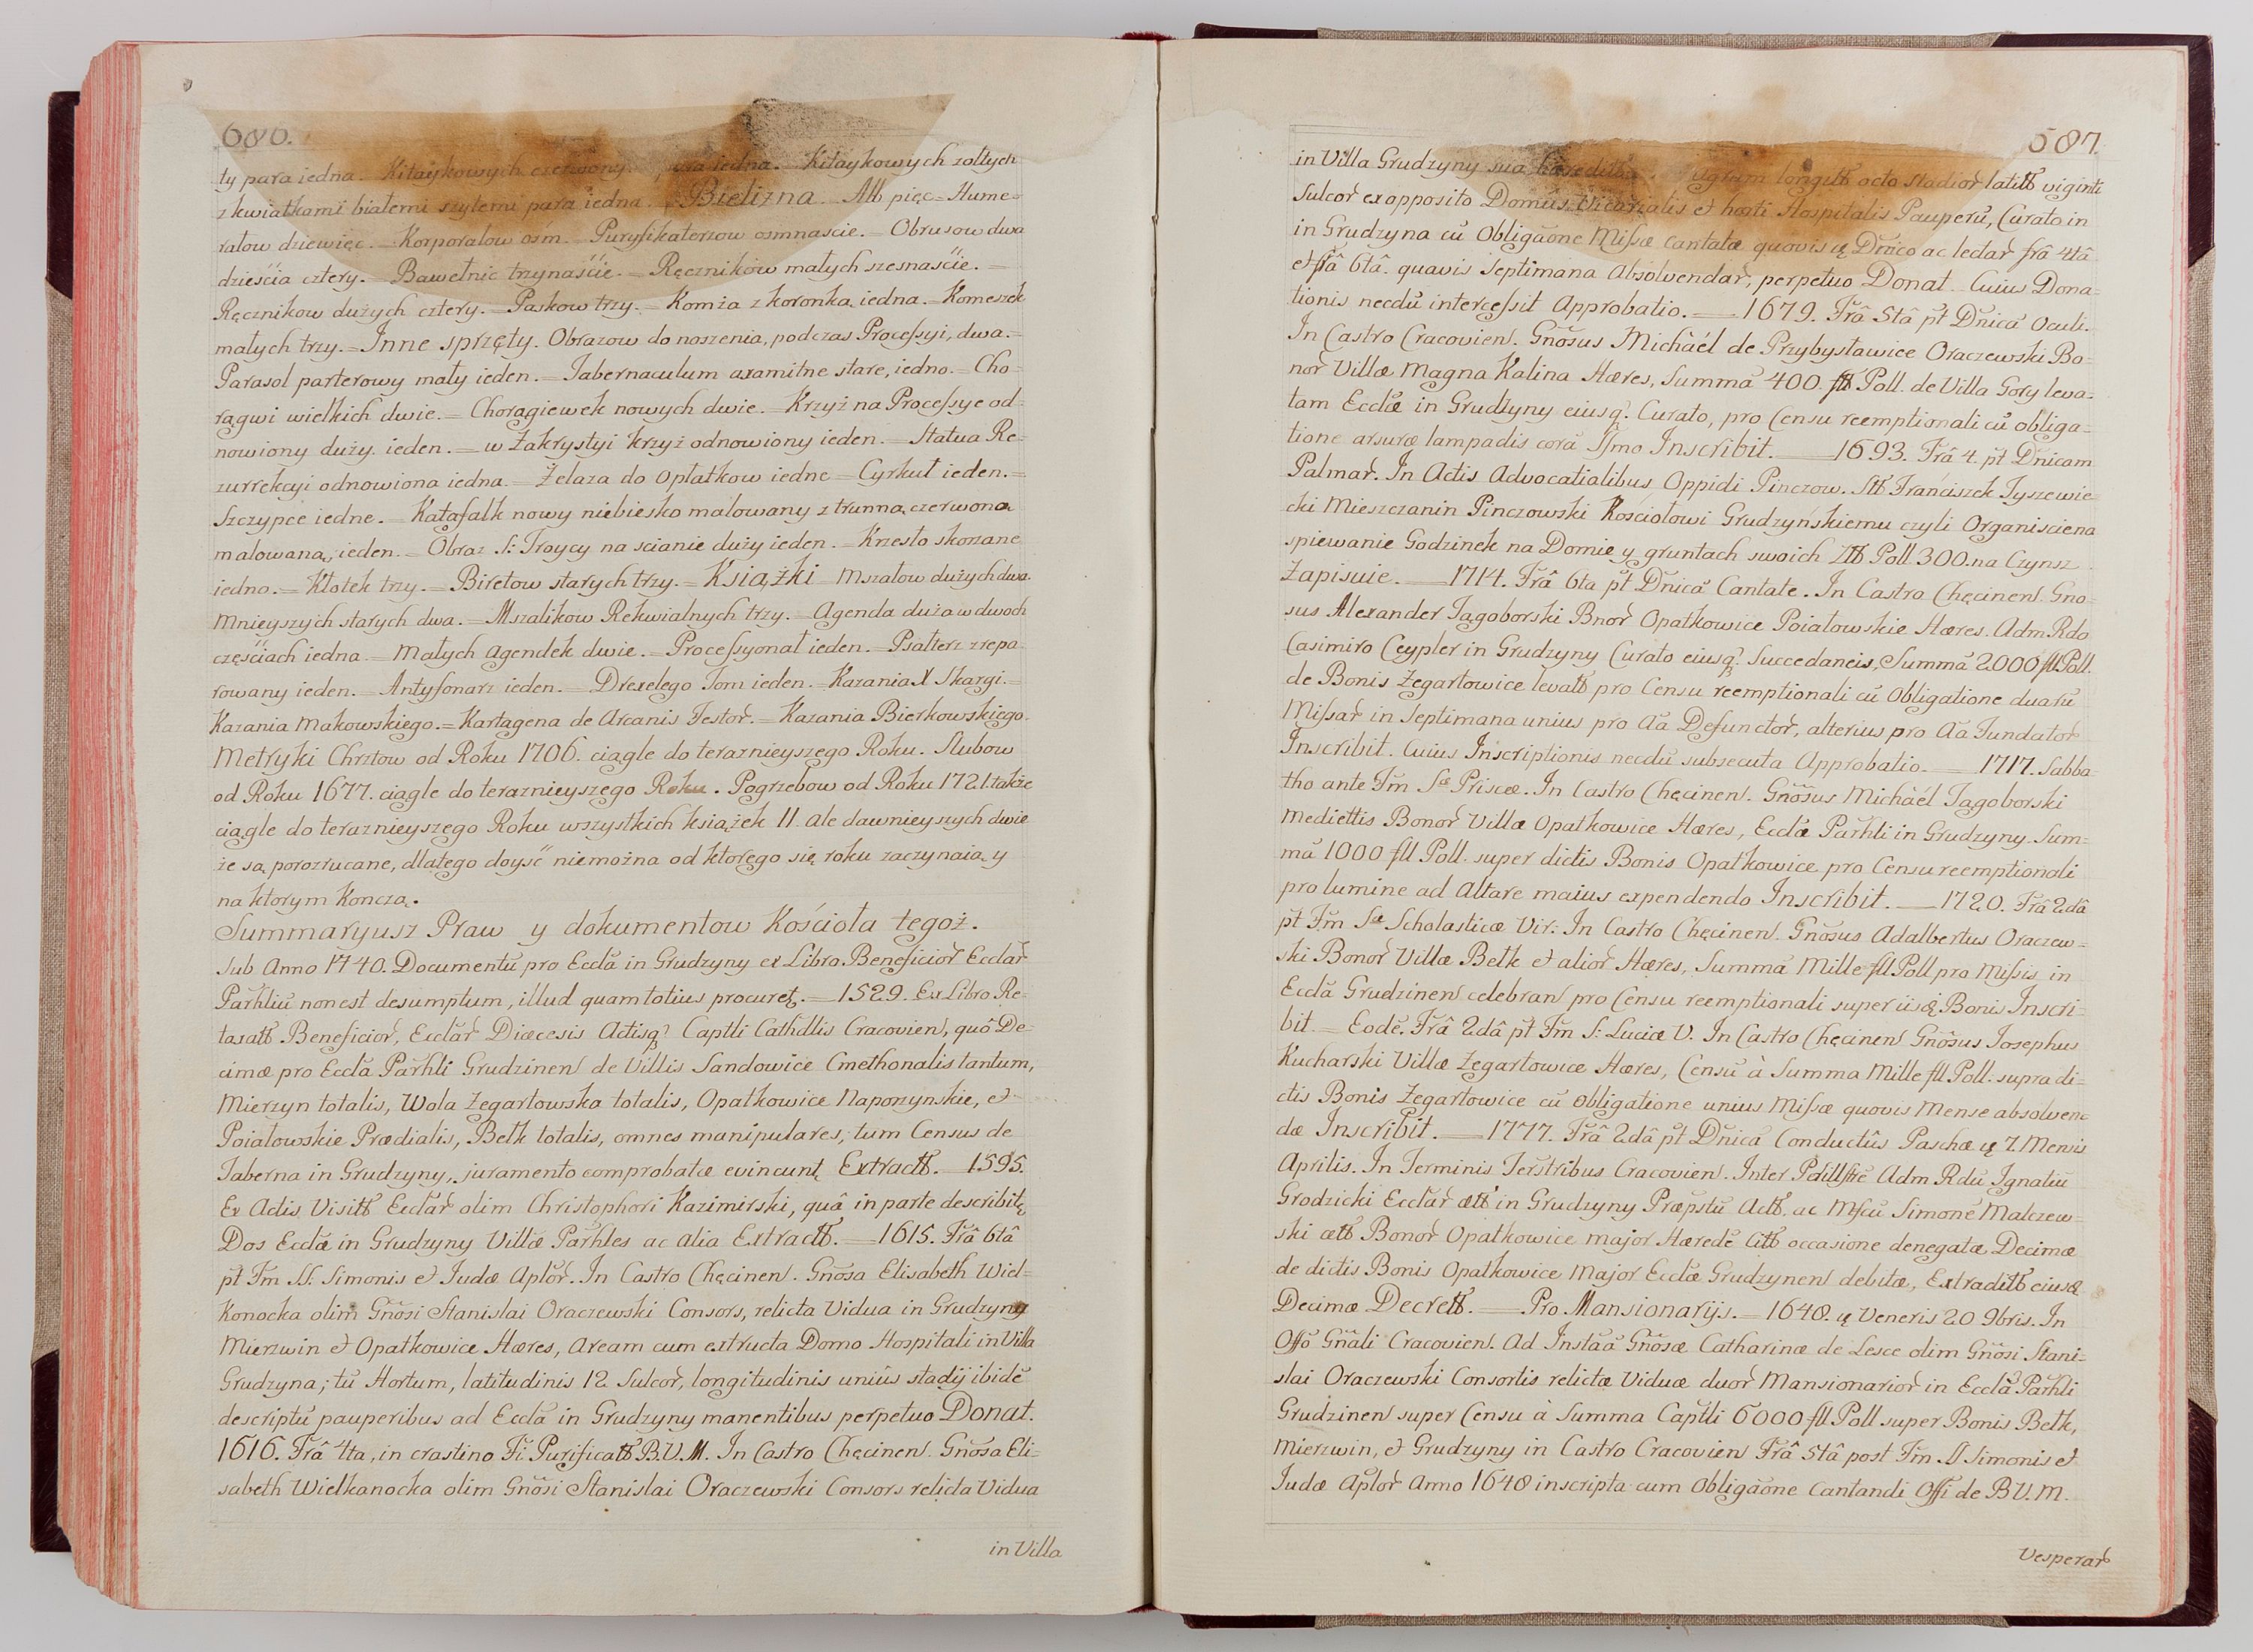 686.
ty para iedna. Kitaykowych czerwony para iedna. Kitaykowych zołtych
z kwiatkami białemi szytemi para iedna. = Bielizna. Alb pięc = Hume=
rałow dziewięc. = Korporałow osm. = Puryfikaterzow osmnascie. = Obrusow dwa
dzieścia cztery. = Bawełnic trzynaście. = Ręczników małych szesnaście. =
Ręcznikow dużych cztery. = Paskow trzy. = Komża z koronką iedna. = Komeszek
małych trzy. = Inne sprzęty. Obrazow do noszenia, podczas Processyi, dwa. =
Parasol parterowy mały ieden. = Tabernaculum axamitne stare, iedno. = Cho=
rągwi wielkich dwie. = Chorągiewek nowych dwie. = Krzyż na Processye od=
nowiony duży ieden. = w Zakrystyi krzyż odnowiony ieden. = Statua Re=
zurrekcyi odnowiona iedna. = Żelaza do Opłatkow iedne = Cyrkuł ieden. =
Szczypce iedne. = Katafalk nowy niebiesko malowany z trunną czerwono
malowaną, ieden. = Obraz S: Troycy na scianie duży ieden. = Krzesło skorzane
iedno. = Kłotek trzy. = Biretow starych trzy. = Książki Mszałow dużych dwa.
Mnieyszych starych dwa. = Mszalikow Rekwialnych trzy. = Agenda duża w dwoch
częściach iedna. = Małych Agendek dwie. = Processyonał ieden. = Psałterz zrepa=
rowany ieden. = Antyfonarz ieden. = Drexelego Tom ieden. = Kazania X Skargi. =
Kazania Makowskiego. = Kartagena de Arcanis Festor. = Kazania Bierkowskiego.
Metryki Chrztow od Roku 1706. ciągle do teraznieyszego Roku. Slubow
od Roku 1677. ciągle do teraznieyszego Roku. Pogrzebow od Roku 1721 także
ciągle do teraznieyszego Roku wszystkich książek 11. ale dawnieyszych dwie
że są porozrucane, dlatego doyść niemożna od ktorego się roku zaczynaią y
na ktorym Konczą.
Summaryusz Praw y dokumentow Kościoła tegoż.
Sub Anno 1740. Documentū pro Ecclã in Grudzyny ex Libro Beneficior Ecclar
Parhliū non est desumptum, illud quam totius procuret. = 1529. Ex Libro Re=
taxatt Beneficior, Ecclar Diæcesis Actisq Captli Cathdlis Cracovien, quô De=
cimæ pro Ecclã Parhli Grudzinen de Villis Sandowice Cmethonalis tantum,
Mierzyn totalis, Wola Zegartowska totalis, Opatkowice Naporzynskie, et
Poiałowskie Prædialis, Bełk totalis, omnes manipulares, tum Census de
Taberna in Grudzyny, juramento comprobatæ evincunt. Extractt. = 1595.
Ex Actis Visitt Ecclar olim Christophori Kazimirski, quâ in parte describit,
Dos Ecclæ in Grudzyny Villæ Parhles ac alia Extractt. = 1615. Frâ 6tâ
pt Fm SS. Simonis et Judæ Aplor. In Castro Chęcinen. Gnosa Elisabeth Wiel=
Konocka olim Gnosi Stanislai Oraczewski Consors, relicta Vidua in Grudzyny
Mierzwin et Opatkowice Hæres, Aream cum extructa Domo Hospitali in Villa
Grudzyna; tū Hortum, latitudinis 12 Sulcor, longitudinis unius stadij ibidē
descriptū pauperibus ad Ecclã in Grudzyny manentibus perpetuo Donat.
1616. Frâ 4ta, in crastino Fi. Purificatt B.V.M. In Castro Chęcinen. Gnosa Eli=
sabeth Wielkanocka olim Gnosi Stanislai Oraczewski Consors relicta Vidua
in Villa
687.
in Villa Grudzyny sua longitt octo stadior latitt viginti
Sulcor ex opposito Domus Vicarialis et horti Hospitalis Pauperū, Curato in
in Grudzyna cū Obligãone Missæ cantatæ quovis Dnico ac lectar frâ 4tâ
et frâ 6tâ. quavis Septimana Absolvendar, perpetuo Donat. Cuius Dona=
tionis necdū intercessit Approbatio. = 1679. Frâ 5tâ pt Dnicā Oculi.
In Castro Cracovien. Gnosus Michaël de Przybysławice Oraczewski Bo=
nor Villæ Magna Kalina Hæres, Summā 400. fll Poll. de Villa Gory leva=
tam Ecclæ in Grudzyny eiusq. Curato, pro Censu reemptionali cū obliga=
tione arsuræ lampadis corā SSmo Inscribit. = 1693. Frâ 4. pt Dnicam
Palmar. In Actis Advocatialibus Oppidi Pinczow. Franciszek Tyszewie=
cki Mieszczanin Pinczowski Kościołowi Grudzyńskiemu czyli Organiscie na
spiewanie Godzinek na Domie y gruntach swoich Poll. 300. na Czynsz
Zapisuie. = 1714. Frâ 6ta pt Dnicā Cantate. In Castro Chęcinen. Gno=
sus Alexander Jagoborski Bnor Opatkowice Poiałowskie Hæres. Adm Rdo
Casimiro Ceypler in Grudzyny Curato eiusq Succedaneis, Summā 2000 fll Poll.
de Bonis Żegartowice levatt pro Censu reemptionali cū Obligatione duarū
Missar in Septimana unius pro Aã Defunctor, alterius pro Aã Fundator
Inscribit. Cuius Inscriptionis necdū subsecuta Approbatio. = 1717. Sabba=
tho ante Fm Sæ Priscæ. In Castro Chęcinen. Gnosus Michaël Jagoborski
Mediettis Bonor Villæ Opatkowice Hæres, Ecclæ Parhli in Grudzyny. Sum=
mā 1000 fll Poll. super dictis Bonis Opatkowice pro Censu reemptionali
pro lumine ad Altare maius expendendo Inscribit. = 1720. Frâ 2dâ
pt Fm Sæ Scholasticæ Vir: In Castro Chęcinen. Gnosus Adalbertus Oraczew=
ski Bonor Villæ Bełk et alior Hæres, Summā Mille fll Poll pro Missis in
Ecclã Grudzinen celebran pro Censu reemptionali super iisq Bonis Inscri=
bit. = Eodē. Frâ 2dâ pt Fm S: Luciæ V. In Castro Chęcinen Gnosus Josephus
Kucharski Villæ Żegartowice Hæres, Censū à Summa Mille fll Poll. supra di=
ctis Bonis Żegartowice cū obligatione unius Missæ quovis Mense absolven=
dæ Inscribit. = 1777. Frâ 2dâ pt Dnicā Conductûs Paschæ 7. Mensis
Aprilis. In Terminis Terstribus Cracovien. Inter Adm Rdū Ignatiū
Grodzicki Ecclar in Grudzyny Præpstū Actt. ac Simonē Malczew=
ski Bonor Opatkowice major Hæredē Citt occasione denegatæ Decimæ
de dictis Bonis Opatkowice Major Ecclæ Grudzynen debitæ, Extraditt eiusq
Decimæ Decrett. = Pro Mansionarijs. = 1648. Veneris 20 9bris. In
Offo Gnali Cracovien. Ad Instãã Gnosæ Catharinæ de Lesce olim Gnosi Stani=
slai Oraczewski Consortis relictæ Viduæ duor Mansionarior in Ecclã Parhli
Grudzinen super Censu à Summa Captli 6000 fll Poll super Bonis Bełk,
Mierzwin, et Grudzyny in Castro Cracovien Frâ 5tâ post Fm SS Simonis et
Judæ Aplor Anno 1648 inscripta cum Obligãone Cantandi Offi de B.V.M.
Vesperar